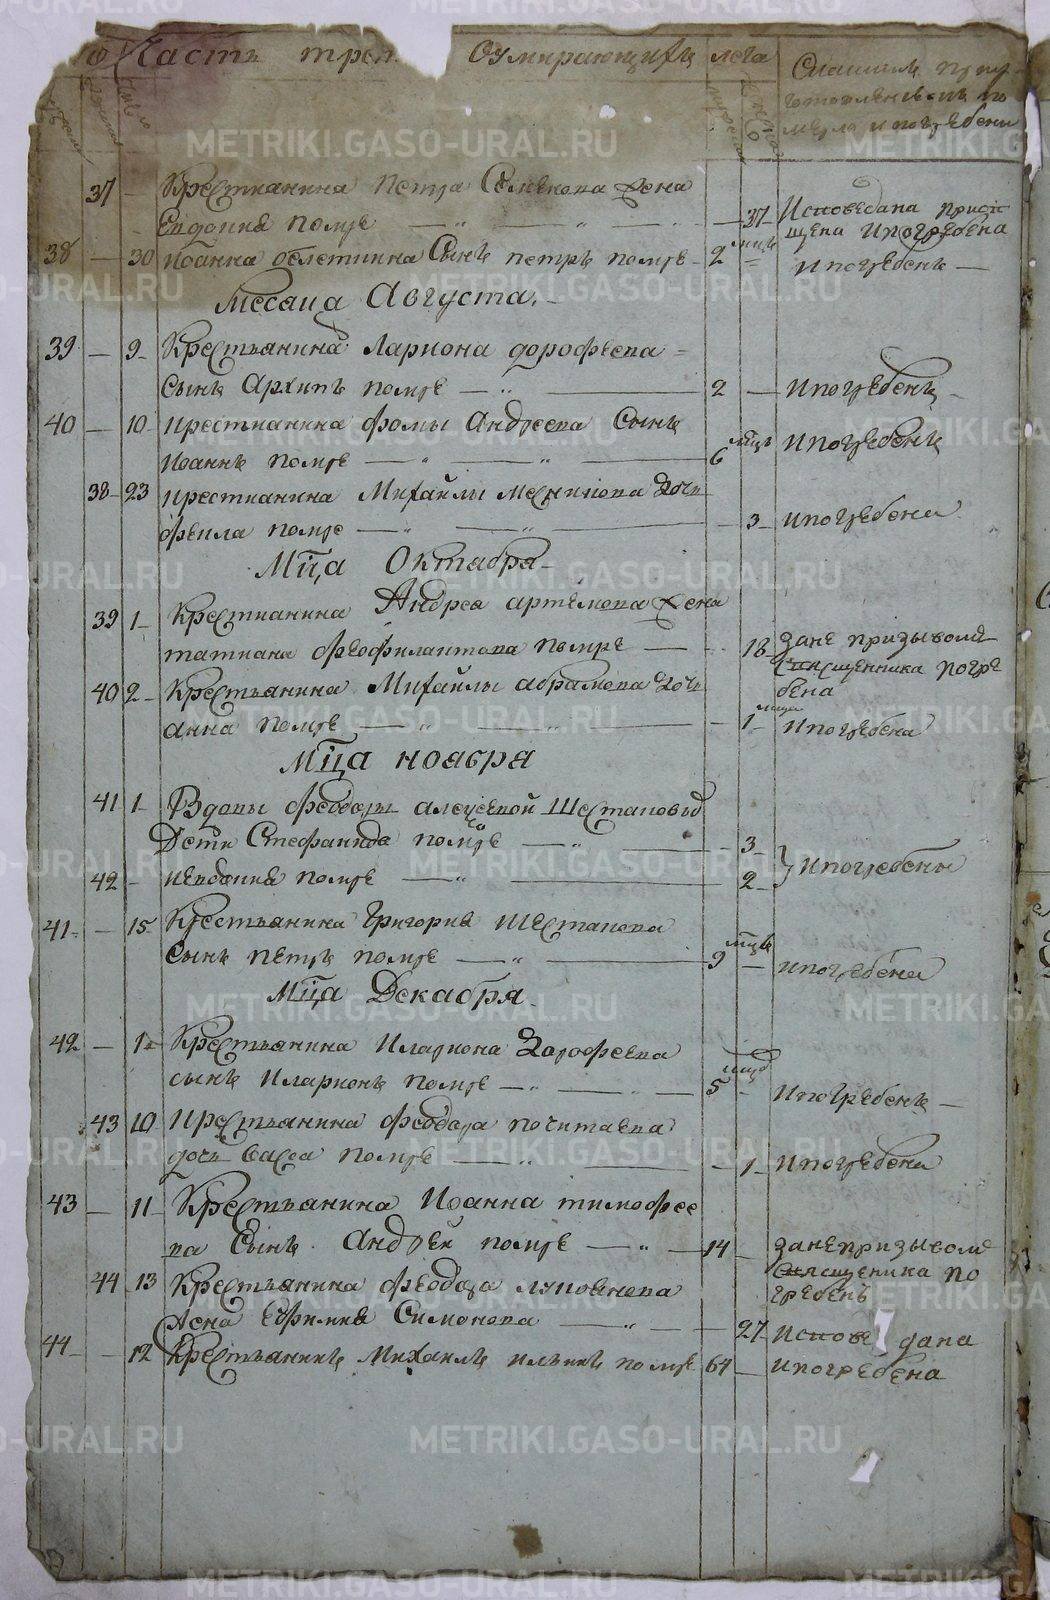 Часть трет Оумирающихъ лета
37 Крестианина Петра Семенова жена
Евдокия помре 37 Исповедана приоп
щена и погребена
38 30 Иоанна сын петръ помре 2 мцъ и погребенъ
Месаца Августа.
39 9 Крестьянина Лариона дорофеева
Сынъ Архипъ помре 2 и погребенъ
40 10 крестианина фомы Андреева Сынъ
Иоаннъ помре 6 мцъ и погребенъ
38 23 крестианина Михайлы дочь
помре 3 и погребена
Мца Октабра
39 1 Крестианина Андрея артемова жена
татиана феофилактова помре 18 зане призывомъ
священника погре
бена
40 2 Крестьянина Михайлы абрамова дочь
анна помре 1 мца и погребена
Мца ноября
41 1 Вдовы феодоры алексеевой Шестаковой
Дети Стефанида помре 3
42 и евдокия помре 2 и погребены
41 15 Крестьянина Григория шестакова
Сынъ петръ помре 9 мцъ и погребена
Мца Декабря
42 1 Крестьянина Илариона Дорофеева
сынъ Иларионъ помре 5 мцъ и погребенъ
43 10 Крестьянина феодора почитаева
дочь васса помре 1 и погребена
43 11 Крестьянина Иоанна тимофее
ва Сынъ Андрей помре 14 зане призывомъ
священника по
гребенъ
44 13 Крестьянина феодора лукоянова
жена Ефимия Симонова 27 испове дана
44 12 Крестьянинъ Михаилъ ильинъ помре 64 и погребена
METRIKI.GASO-URAL.RU